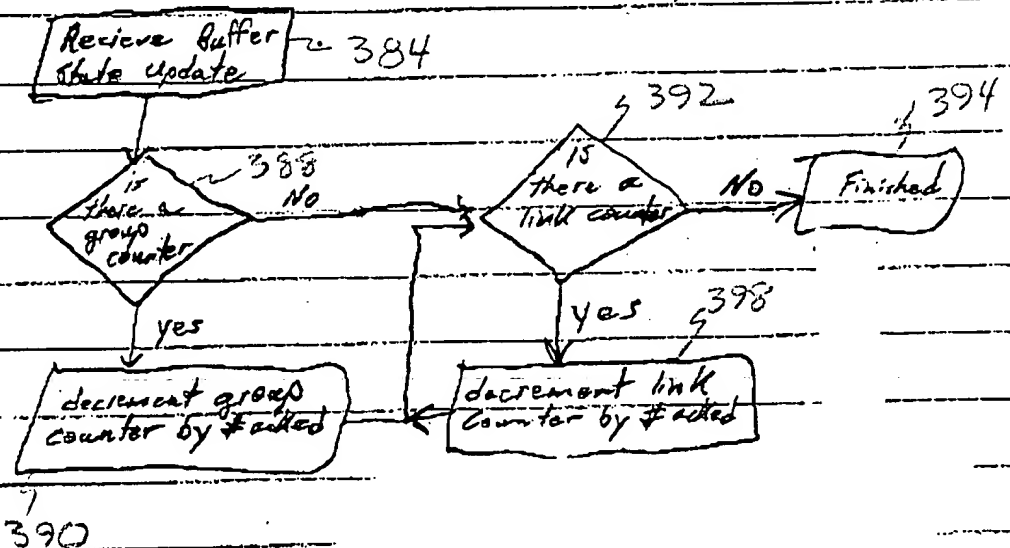 Recieve Buffer
State update
384
392
394
is
there a
group
counter
388
No
is
there a
link counter
No
Finished
yes
yes
398
decrement group
counter by # acked
decrement link
counter by # acked
390